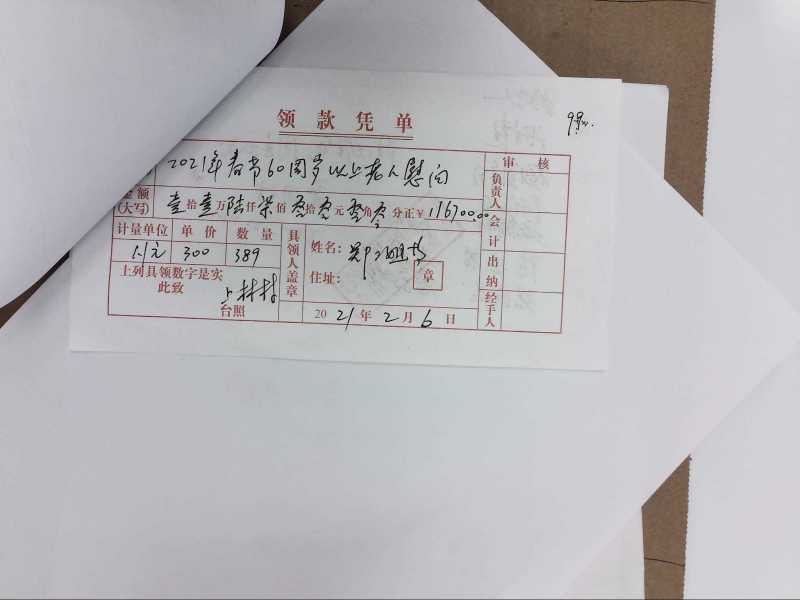 领款凭单
2021年春节60周岁以上老人慰问
审核
金额(大写) 壹拾壹万陆仟柒佰 拾 元 角 分正¥116700.00
负责人
会计
计量单位 单价 数量
具领人盖章
姓名: 郑
元 300 389
出纳
住址: 章
上列具领数字是实
此致
上林村
台照
2021年2月6日
经手人